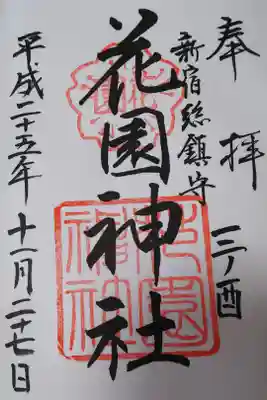 奉拝
三ノ酉
新宿総鎮守
花園神社
平成二十五年十一月二十七日
花園神社